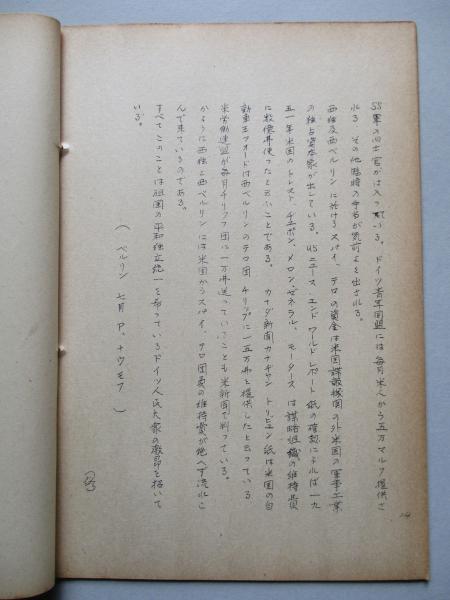 SS軍の旧士官がは入っている。ドイツ青年同盟には毎月米人から五万マルク提供さ
れる その他臨時の手当が気前よを出される。
西独及西ベルリンに於けるスパイ、テロの資金は米国諜報機関の外米国の軍事工業
の独占資本家が出している。USニュース・エンド ワールド レポート紙の確認によれば一九
五一年米国のトレスト、デュポン、メロン、ゼネラル、モータースは謀略組織の維持費
に数億弗使ったと云ふことである。 カナダ新聞カナヂヤン トリビューン紙は米国の自
動車王フォードは西ベルリンのテロ団 チリップに一五万弗を提供したと云っている
米労働連盟が毎月チリップ団に一万弗送っていることも米新聞で判っている。
かように西独と西ベルリンには米国からスパイ、テロ団員の維持費が絶へず流れこ
んで来ているのである。
すべてこのことは祖国の平和独立統一を希っているドイツ人民大衆の激昂を招いて
いる。
( ベルリン 七月 P. ナウモフ )
24